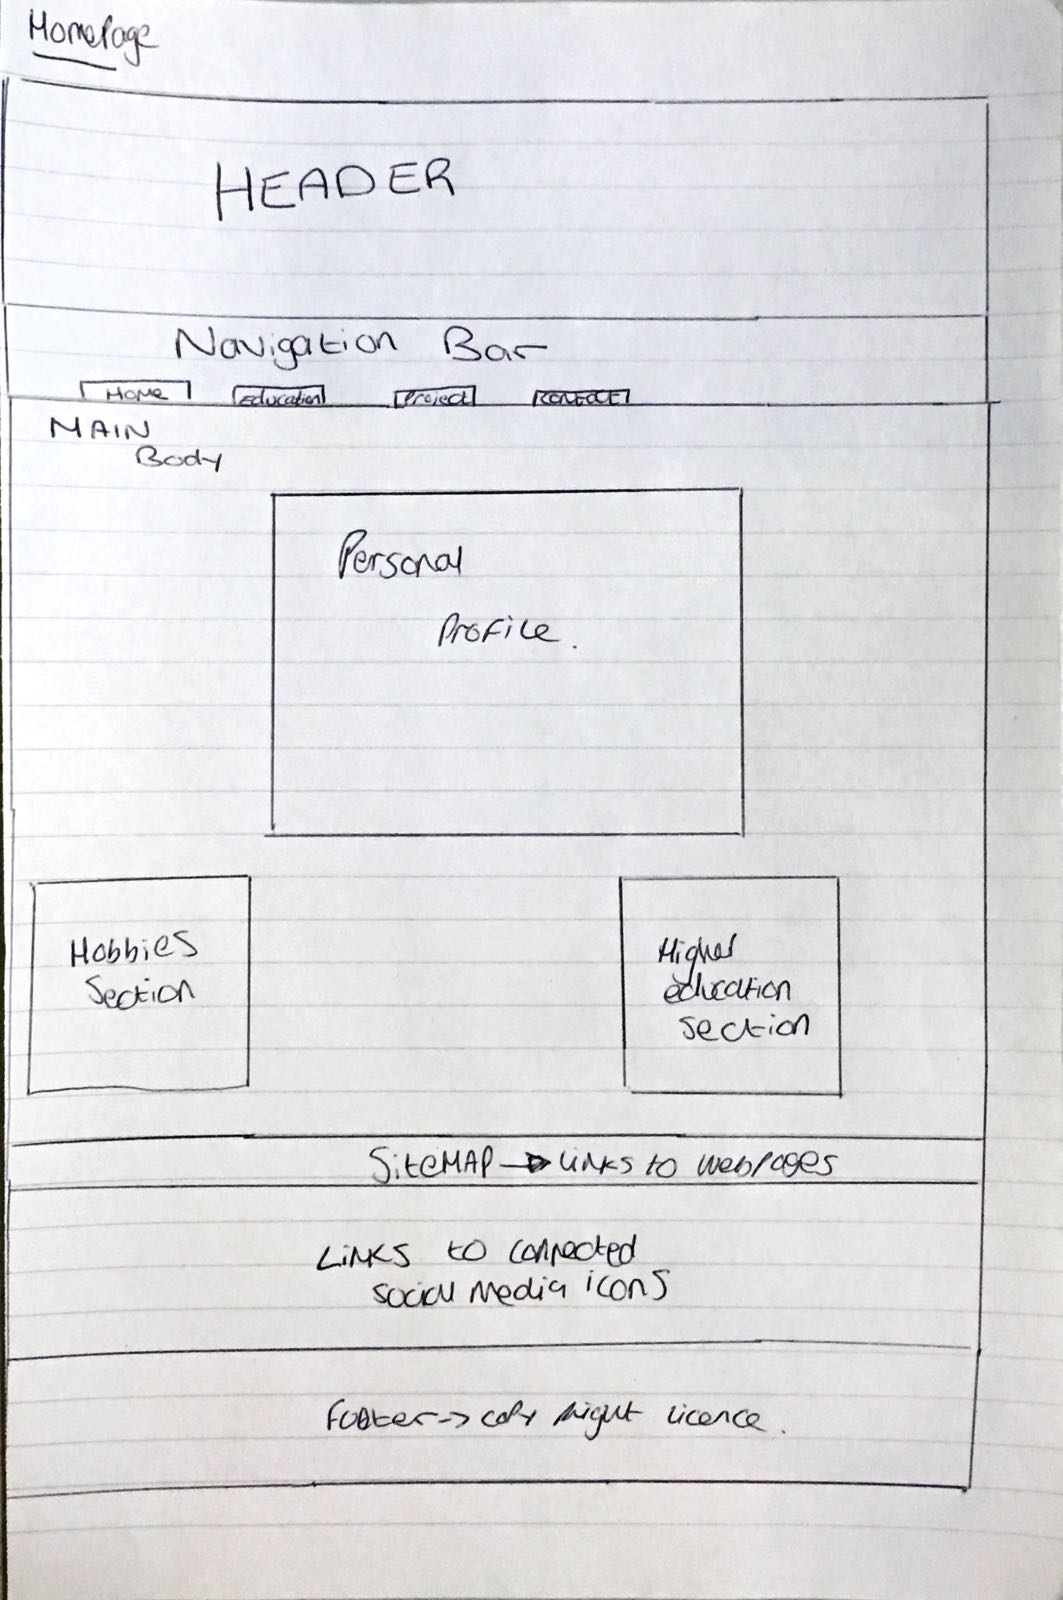 HomePage
HEADER
Navigation Bar
Home Education Project contact
MAIN
Body
Personal
Profile.
Hobbies
Section
Higher
education
section
SiteMAP → LINKS to webpages
LINKS to connected
social media icons
Footer -> copy right licence.